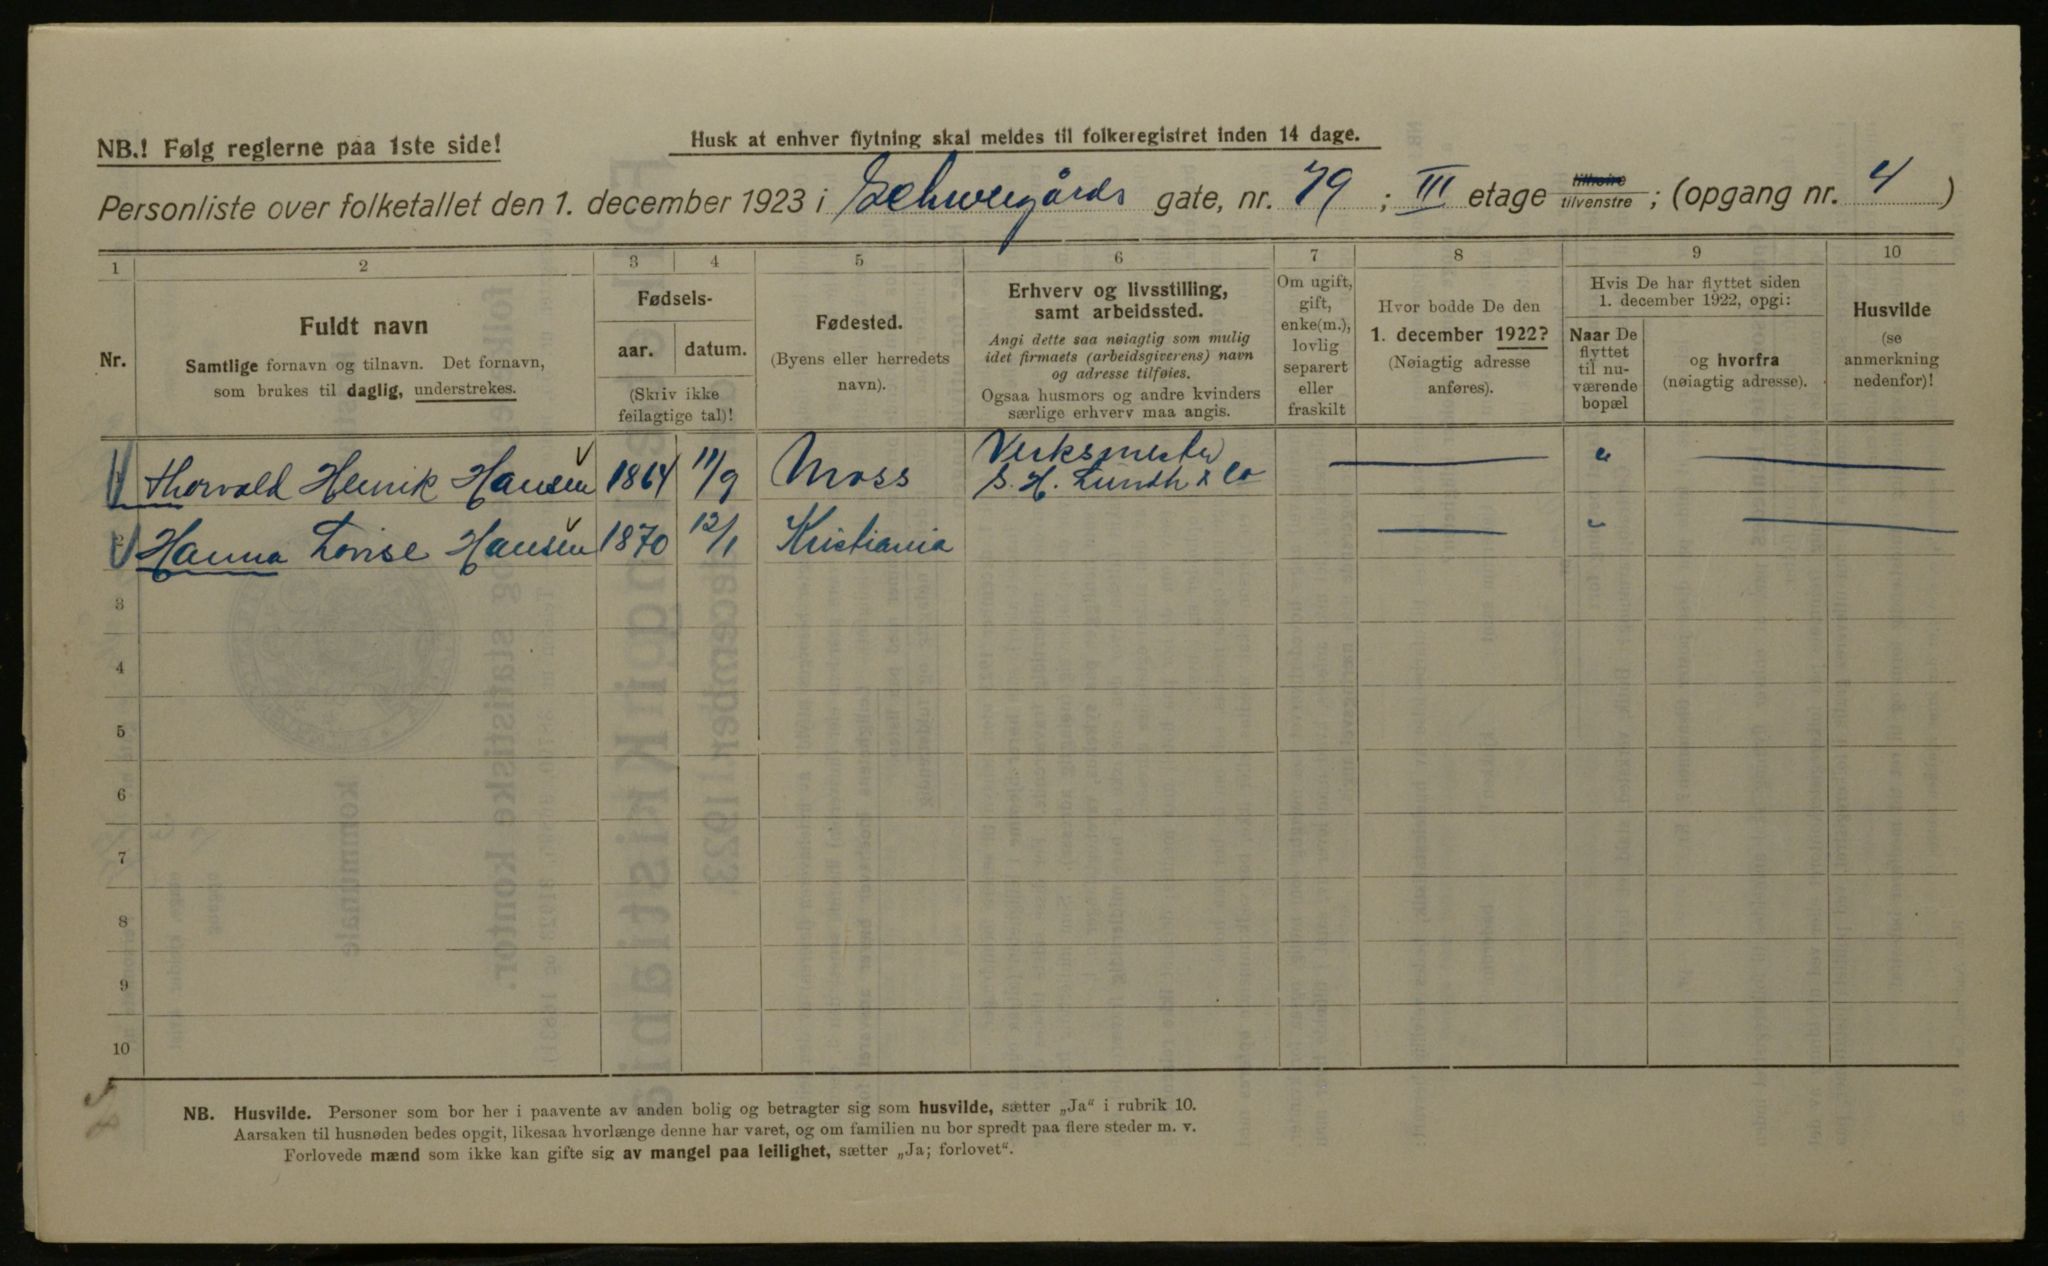 NB.! Følg reglerne paa 1ste side!
Husk at enhver flytning skal meldes til folkeregistret inden 14 dage.
Personliste over folketallet den 1. december 1923 i Schweigårds gate, nr. 79 ; III etage tilhøire tilvenstre ; (opgang nr. 4 )
1 2 3 4 5 6 7 8 9 10
Nr.
Fuldt navn
Samtlige fornavn og tilnavn. Det fornavn,
som brukes til daglig, understrekes.
Fødsels-
aar. datum.
(Skriv ikke
feilagtige tal)!
Fødested.
(Byens eller herredets
navn).
Erhverv og livsstilling,
samt arbeidssted.
Angi dette saa nøiagtig som mulig
idet firmaets (arbeidsgiverens) navn
og adresse tilføies.
Ogsaa husmors og andre kvinders
særlige erhverv maa angis.
Om ugift,
gift,
enke(m.),
lovlig
separert
eller
fraskilt
Hvor bodde De den
1. december 1922?
(Nøiagtig adresse
anføres).
Hvis De har flyttet siden
1. december 1922, opgi:
Naar De
flyttet
til nu-
værende
bopæl
og hvorfra
(nøiagtig adresse).
Husvilde
(se
anmerkning
nedenfor)!
1 Thorvald Henrik Hansen 1864 11/9 Moss Verksmester — " —
S. H. Lundh & Co
2 Hanna Lovise Hansen 1870 12/1 Kristiania — " —
3
4
5
6
7
8
9
10
NB. Husvilde. Personer som bor her i paavente av anden bolig og betragter sig som husvilde, sætter „Ja“ i rubrik 10.
Aarsaken til husnøden bedes opgit, likesaa hvorlænge denne har varet, og om familien nu bor spredt paa flere steder m. v.
Forlovede mænd som ikke kan gifte sig av mangel paa leilighet, sætter „Ja; forlovet“.